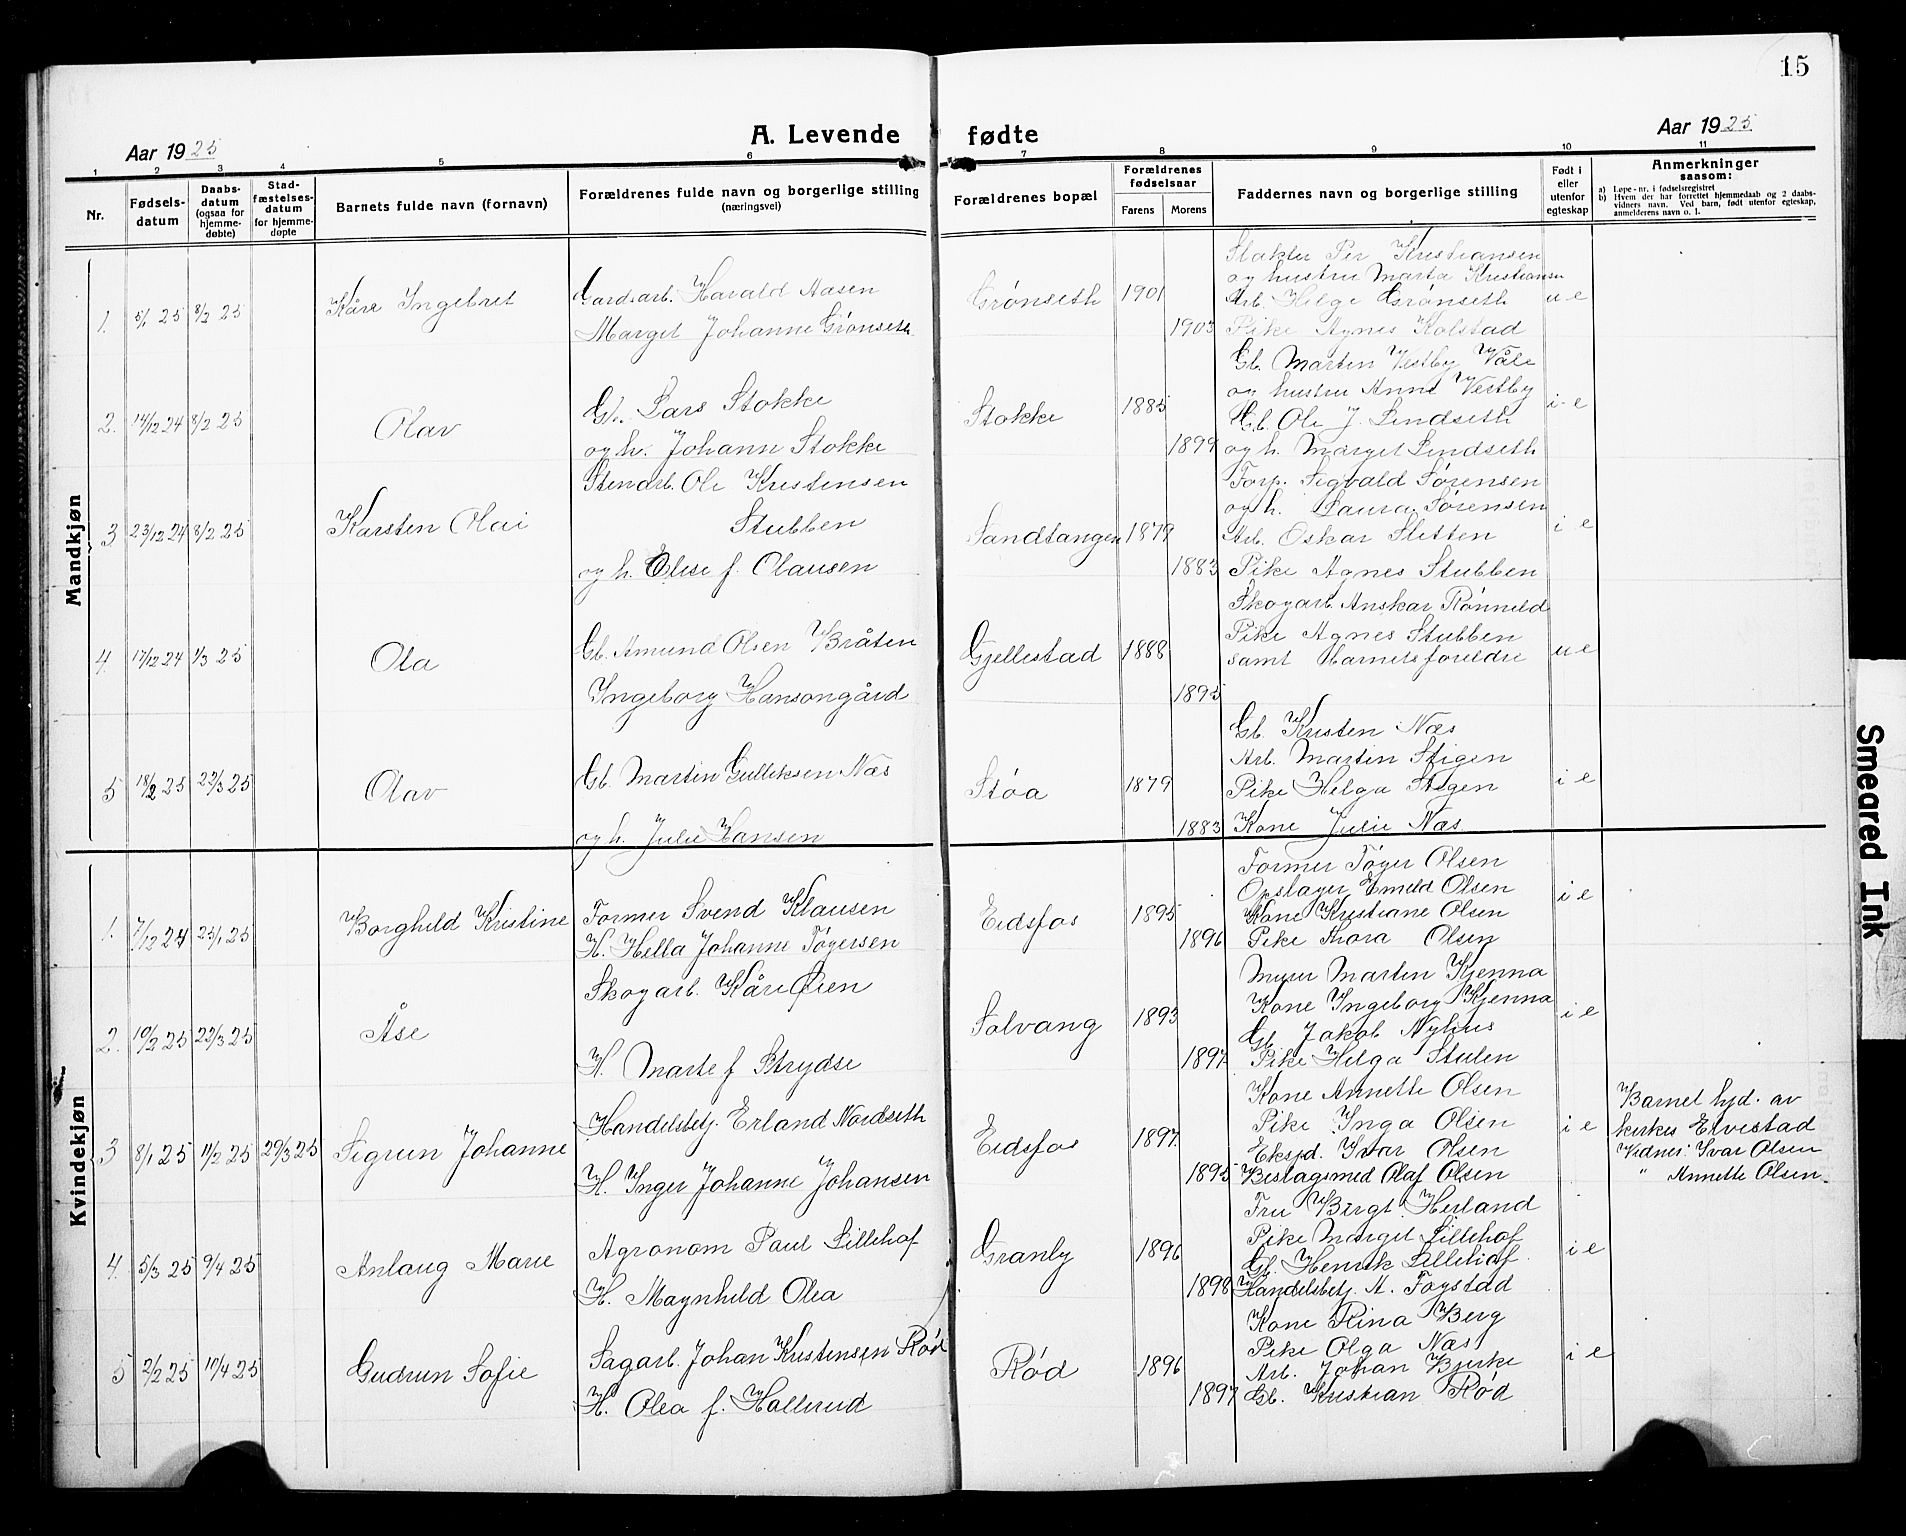 15
Aar 1925
A. Levende fødte
Aar 1925
1 2 3 4 5 6 7 8 9 10 11
Nr.
Fødsels-
datum
Daabs-
datum
(ogsaa for
hjemme-
døbte)
Stad-
fæstelses-
datum
for hjemme-
døpte
Barnets fulde navn (fornavn)
Forældrenes fulde navn og borgerlige stilling
(næringsvei)
Forældrenes bopæl
Forældrenes
fødselsaar
Farens Morens
Faddernes navn og borgerlige stilling
Født i
eller
utenfor
egteskap
Anmerkninger
saasom:
a) Løpe-nr. i fødselsregistret
b) Hvem der har forrettet hjemmedaab og 2 daabs-
vidners navn. Ved barn, født utenfor egteskap,
anmelderens navn o. l.
Mandkjøn
1. 5/1 25 8/2 25 Kåre Ingebret
Gardsarb. Harald Aasen
Marget Johanne Grønseth
Grønseth 1901 1903
Slakter Per Kristiansen
og hustru Marta Kristiansen
Arb. Helge Grønseth
Pike Agnes Kolstad
u e
2. 14/12 24 8/2 25 Olav
Gb. Lars Stokke
og h. Johann Stokke
Stokke 1885 1899
Gb. Martin Vestby Våle
og hustru Anne Vestby
Gb. Ole J. Lindseth
og h. Marget Lindseth
i e
3 23/12 24 8/2 25 Karsten Olai
Stenarb. Ole Kristensen
Stubben
og h. Elise f. Clausen
Sandtangen 1879 1883
Forp. Sigvald Sørensen
og h. Laura Sørensen
Arb. Oskar Sletten
Pike Agnes Stubben
i e
4. 17/12 24 1/3 25 Ola
Gb. Amund Olsen Bråten
Ingeborg Hansongård
Gjellestad 1888 1895
Skogarb. Anskar Rønneld
Pike Agnes Stubben
samt barnets foreldre
u e
5 18/2 25 22/3 25 Olav
Gb. Martin Gulliksen Næs
og h. Julie Hansen
Støa 1879 1883
Gb. Kristen Næs
Arb. Martin Stigen
Pike Helga Stigen
Kone Julie Næs
i e
Kvindekjøn
1. 7/12 24 25/1 25 Borghild Kristine
Former Svend Klausen
H. Hella Johanne Tøgersen
Eidsfos 1895 1896
Former Tøger Olsen
Opslager Emeld Olsen
Kone Kristiane Olsen
Pike Thora Olsen
i e
2. 10/2 25 22/3 25 Åse
Skogarb. Kåre Øien
H. Marte f Strydse
Solvang 1893 1897
Murer Martin Kjenna
Kone Ingeborg Kjenna
Gb. Jakob Nyhus
Pike Helga Stulen
i e
3 8/1 25 11/2 25 29/3 25 Sigrun Johanne
Handelsbetj. Erland Nordseth
H. Inger Johanne Johansen
Eidsfos 1897 1895
Kone Annette Olsen
Pike Inga Olsen
Eksped. Ivar Olsen
Beslagsmed Olaf Olsen
i e
Barnet hjd. av
kirkes. Elvestad
Vidner: Ivar Olsen
" Annette Olsen.
4. 5/3 25 9/4 25 Anlaug Marie
Agronom Paul Lillehof
H. Magnhild Olea
Granly 1896 1898
Fru Birgt. Herland
Pike Marget Lillehof
Gb. Henrik Lillehof
Handelsbetj. A. Fogstad
i e
5 2/2 25 10/4 25 Gudrun Sofie
Sagarb. Johan Kristensen Rød
H. Olea f. Hallerud
Rød 1896 1897
Kone Rina Berg
Pike Olga Næs
Arb. Johan Bjerke
Gb. Kristian Rød
i e
Smeared Ink